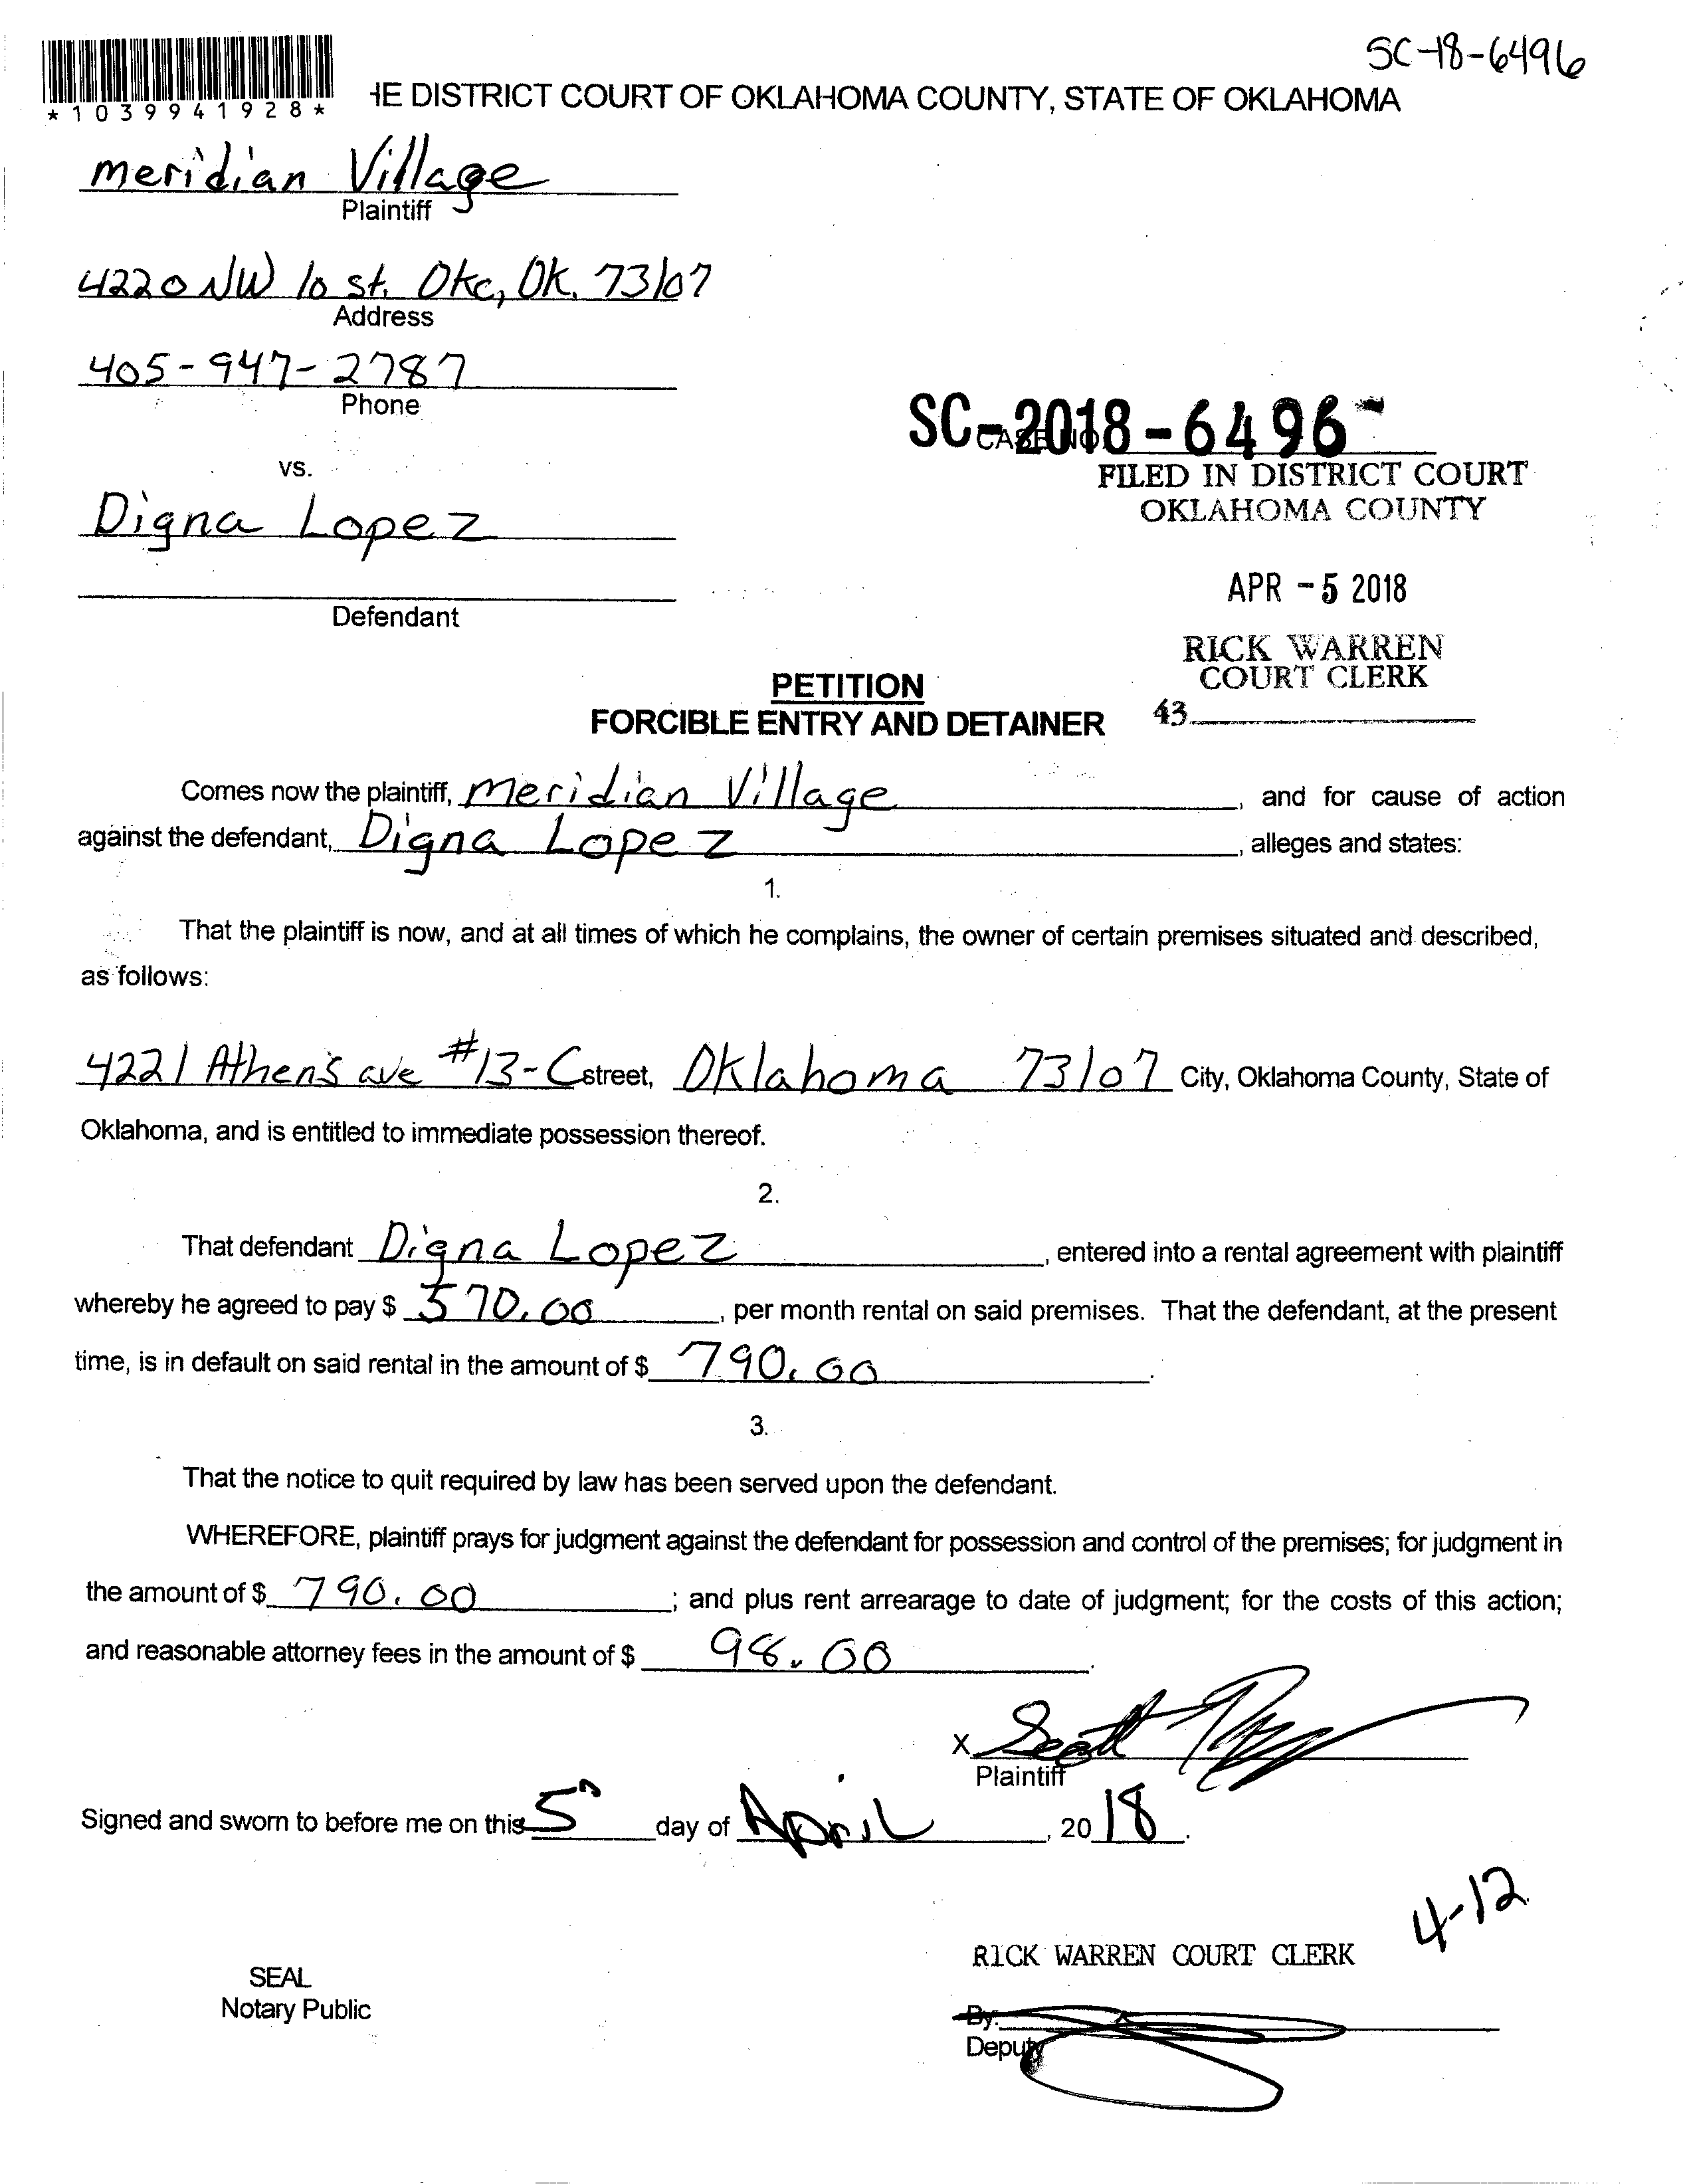 SC-18-6496
*1039941928*
HE DISTRICT COURT OF OKLAHOMA COUNTY, STATE OF OKLAHOMA
meridian Village
Plaintiff
4220 NW 10 st. Okc, OK. 73107
Address
405-947-2787
Phone
SC-2018-6496
CASE NO
FILED IN DISTRICT COURT
OKLAHOMA COUNTY
vs.
Digna Lopez
APR -5 2018
Defendant
RICK WARREN
COURT CLERK
43
PETITION
FORCIBLE ENTRY AND DETAINER
Comes now the plaintiff, meridian Village, and for cause of action
against the defendant, Digna Lopez, alleges and states:
1.
That the plaintiff is now, and at all times of which he complains, the owner of certain premises situated and described,
as follows:
4221 Athens ave #13-C street, Oklahoma 73107 City, Oklahoma County, State of
Oklahoma, and is entitled to immediate possession thereof.
2.
That defendant Digna Lopez, entered into a rental agreement with plaintiff
whereby he agreed to pay $ 570.00, per month rental on said premises. That the defendant, at the present
time, is in default on said rental in the amount of $ 790.00.
3.
That the notice to quit required by law has been served upon the defendant.
WHEREFORE, plaintiff prays for judgment against the defendant for possession and control of the premises; for judgment in
the amount of $ 790.00; and plus rent arrearage to date of judgment; for the costs of this action;
and reasonable attorney fees in the amount of $ 98.00.
X Scott
Plaintiff
Signed and sworn to before me on this 5 day of April, 2018.
4-12
RICK WARREN COURT CLERK
SEAL
Notary Public
By:
Deputy